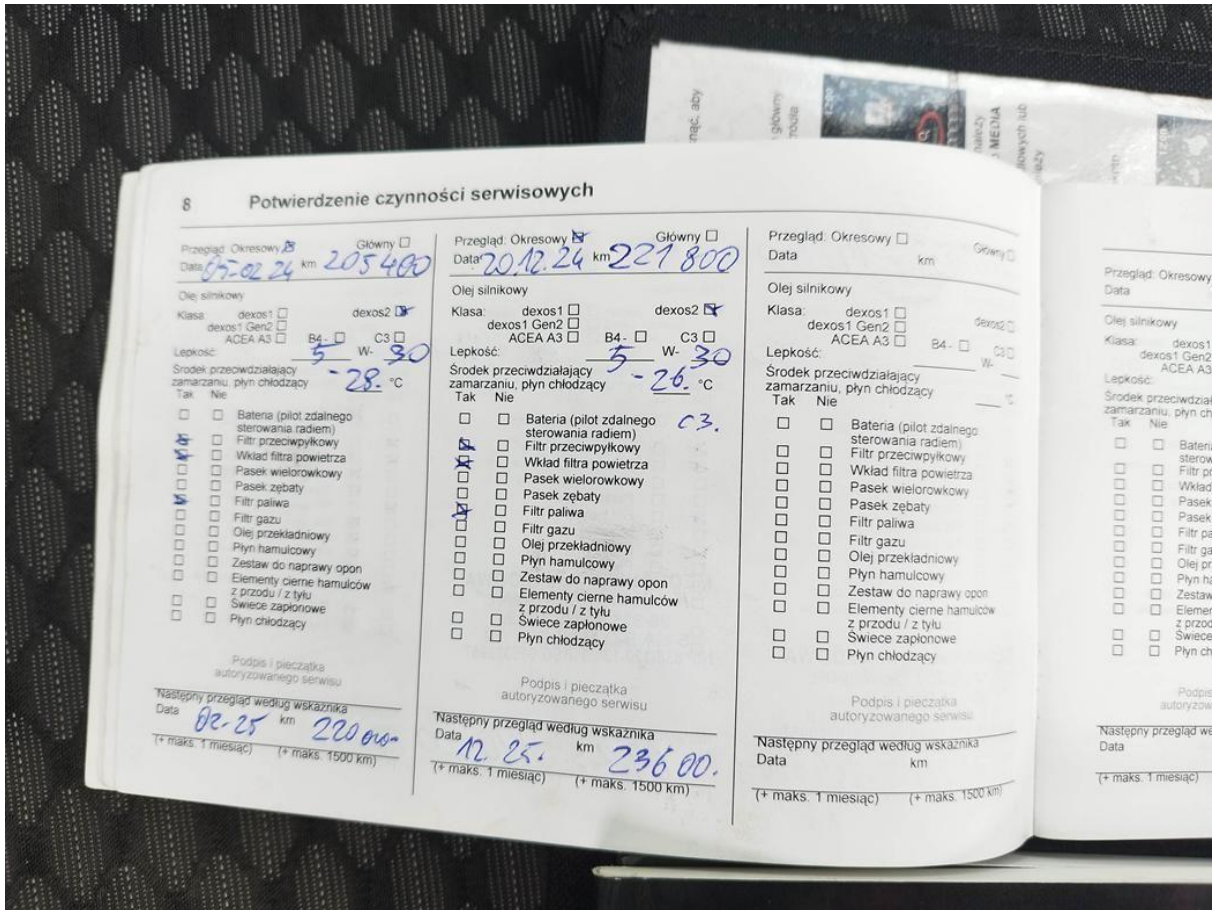 8 Potwierdzenie czynności serwisowych
Przegląd: Okresowy Główny
Data 05-02 24 km 205400
Olej silnikowy
Klasa: dexos1 dexos2
dexos1 Gen2
ACEA A3 B4- C3
Lepkość: 5 W- 30
Środek przeciwdziałający
zamarzaniu, płyn chłodzący -28. °C
Tak Nie
Bateria (pilot zdalnego
sterowania radiem)
Filtr przeciwpyłkowy
Wkład filtra powietrza
Pasek wielorowkowy
Pasek zębaty
Filtr paliwa
Filtr gazu
Olej przekładniowy
Płyn hamulcowy
Zestaw do naprawy opon
Elementy cierne hamulców
z przodu / z tyłu
Świece zapłonowe
Płyn chłodzący
Podpis i pieczątka
autoryzowanego serwisu
Następny przegląd według wskaźnika
Data 02-25 km 220 000
(+ maks. 1 miesiąc) (+ maks. 1500 km)
Przegląd: Okresowy Główny
Data 20.12.24 km 221 800
Olej silnikowy
Klasa: dexos1 dexos2
dexos1 Gen2
ACEA A3 B4- C3
Lepkość: 5 W- 30
Środek przeciwdziałający
zamarzaniu, płyn chłodzący -26. °C
Tak Nie
Bateria (pilot zdalnego C3.
sterowania radiem)
Filtr przeciwpyłkowy
Wkład filtra powietrza
Pasek wielorowkowy
Pasek zębaty
Filtr paliwa
Filtr gazu
Olej przekładniowy
Płyn hamulcowy
Zestaw do naprawy opon
Elementy cierne hamulców
z przodu / z tyłu
Świece zapłonowe
Płyn chłodzący
Podpis i pieczątka
autoryzowanego serwisu
Następny przegląd według wskaźnika
Data 12.25. km 23600.
(+ maks. 1 miesiąc) (+ maks. 1500 km)
Przegląd: Okresowy Główny
Data km
Olej silnikowy
Klasa: dexos1 dexos2
dexos1 Gen2
ACEA A3 B4- C3
Lepkość: W-
Środek przeciwdziałający
zamarzaniu, płyn chłodzący °C
Tak Nie
Bateria (pilot zdalnego
sterowania radiem)
Filtr przeciwpyłkowy
Wkład filtra powietrza
Pasek wielorowkowy
Pasek zębaty
Filtr paliwa
Filtr gazu
Olej przekładniowy
Płyn hamulcowy
Zestaw do naprawy opon
Elementy cierne hamulców
z przodu / z tyłu
Świece zapłonowe
Płyn chłodzący
Podpis i pieczątka
autoryzowanego serwisu
Następny przegląd według wskaźnika
Data km
(+ maks. 1 miesiąc) (+ maks. 1500 km)
Przegląd: Okresowy
Data
Olej silnikowy
Klasa: dexos1
dexos1 Gen2
ACEA A3
Lepkość:
Środek przeciwdział
zamarzaniu, płyn ch
Tak Nie
Bateria
sterow
Filtr p
Wkład
Pasek
Pasek
Filtr pa
Filtr ga
Olej pr
Płyn ha
Zestaw
Elemen
z przod
Świece
Płyn ch
Podpis
autoryzow
Następny przegląd we
Data
(+ maks. 1 miesiąc)
aby
główny
należy
MEDIA
lub